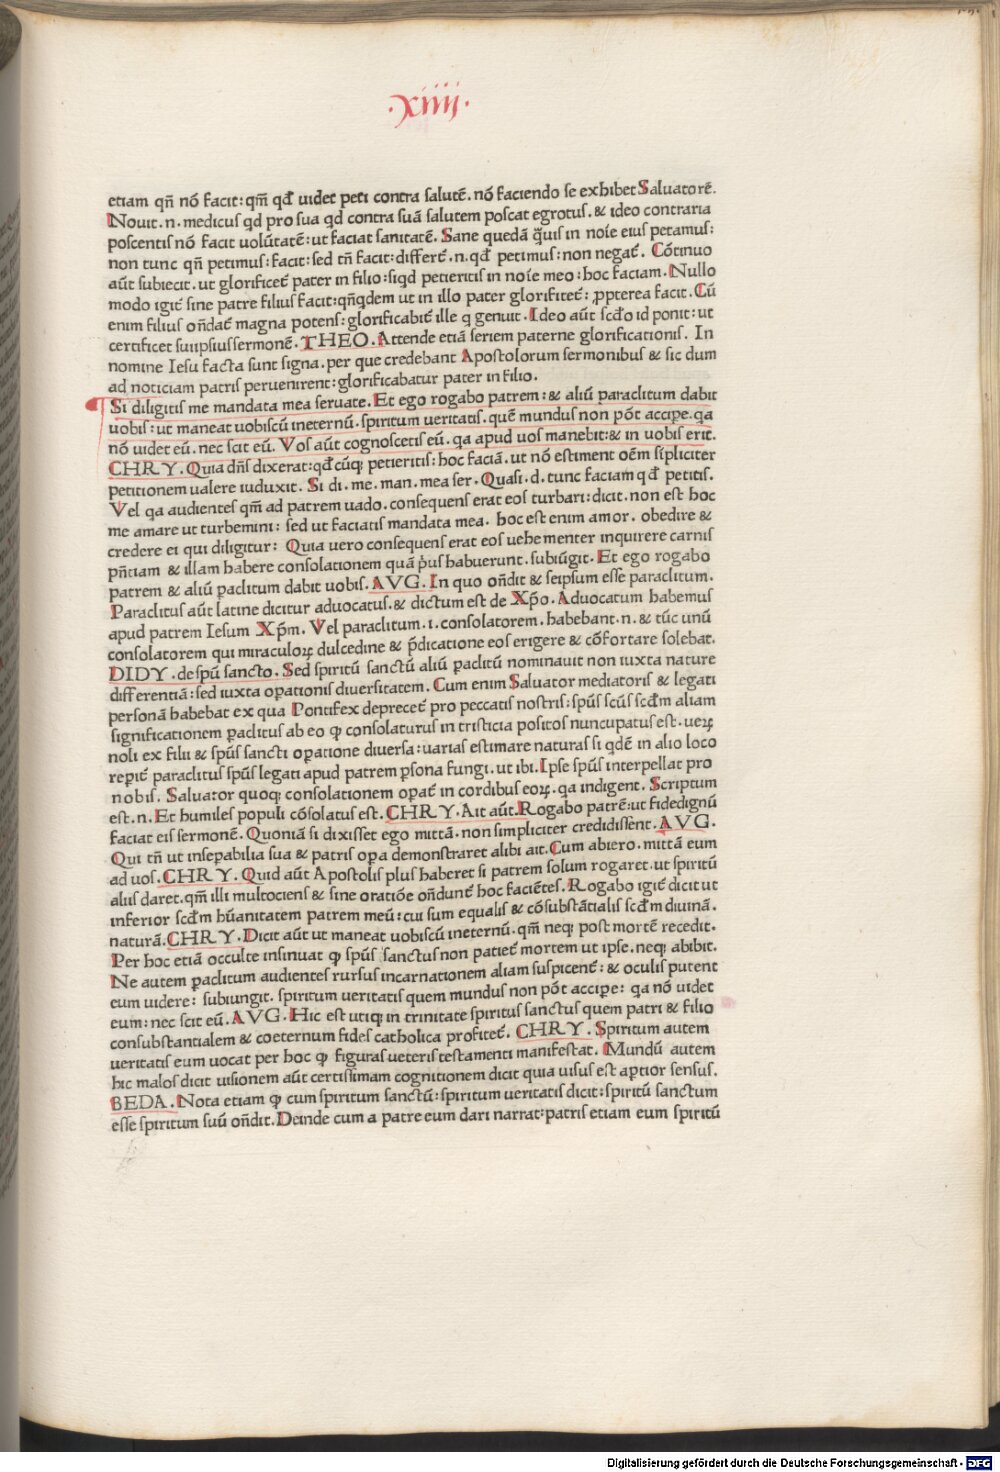 ·xiiij·
etiam qñ nō facit: qm̄ qđ uidet peti contra salutē. nō faciendo se exhibet Saluatorē.
Nouit .n. medicus qd pro sua qd contra suā salutem poscat egrotus. & ideo contraria
poscentis nō facit uolūtatē: ut faciat sanitatē. Sane quedā q̃uis in noīe eius petamus:
non tunc qñ petimus: facit: sed tñ facit: differt̄ .n. qđ petimus: non negat̄. Cōtinuo
aūt subiecit. ut glorificet̄ pater in filio: siqd petieritis in noīe meo: hoc faciam. Nullo
modo igit̄ sine patre filius facit: qñqdem ut in illo pater glorifitet̄: ꝓpterea facit. Cū
enim filius oñdat̄ magna potens: glorificabit̄ ille q genuit. Ideo aūt scđo id ponit: ut
certificet suiipsius sermonē. THEO. Attende etiā seriem paterne glorificationis. In
nomine Iesu facta sunt signa. per que credebant Apostolorum sermonibus & sic dum
ad noticiam patris peruenirent: glorificabatur pater in filio.
¶ Si diligitis me mandata mea seruate. Et ego rogabo patrem: & aliū paraclitum dabit
uobis: ut maneat uobiscū ineternū. spiritum ueritatis. quē mundus non pōt accipe. qa
nō uidet eū. nec scit eū. Vos aūt cognoscetis eū. qa apud uos manebit: & in uobis erit.
CHRY. Quia dñs dixerat: qđcūq; petieritis: hoc faciā. ut nō estiment oēm sīpliciter
petitionem ualere iuduxit. Si di. me. man. mea ser. Quasi .d. tunc faciam qđ petitis.
Vel qa audientes qm̄ ad patrem uado. consequens erat eos turbari: dicit. non est hoc
me amare ut turbemini: sed ut faciatis mandata mea. hoc est enim amor. obedire &
credere ei qui diligitur: Quia uero consequens erat eos uehementer inquirere carnis
pñtiam & illam habere consolationem quā p̄us habuerunt. subiūgit. Et ego rogabo
patrem & aliū paclitum dabit uobis. AVG. In quo oñdit & seipsum esse paraclitum.
Paraclitus aūt latine dicitur aduocatus. & dictum est de Xp̄o. Aduocatum habemus
apud patrem Iesum Xp̄m. Vel paraclitum .i. consolatorem. habebant .n. & tūc unū
consolatorem qui miraculoꝝ dulcedine & p̄dicatione eos erigere & cōfortare solebat.
DIDY. de spū sancto. Sed spiritū sanctū aliū ꝑaclitū nominauit non iuxta nature
differentiā: sed iuxta oꝑationis diuersitatem. Cum enim Saluator mediatoris & legati
personā habebat ex qua Pontifex deprecet̄ pro peccatis nostris: spūs scūs scđm aliam
significationem ꝑaclitus ab eo ꝙ consolaturus in tristicia positos nuncupatus est. ueꝝ
noli ex filii & spūs sancti oꝑatione diuersa: uarias estimare naturas si qdē in alio loco
repit̄ paraclitus spūs legati apud patrem ꝑsona fungi. ut ibi. Ipse spūs interpellat pro
nobis. Saluator quoq; consolationem oꝑat̄ in cordibus eoꝝ. qa indigent. Scriptum
est .n. Et humiles populi cōsolatus est. CHRY. Ait aūt. Rogabo patrē: ut fidedignū
faciat eis sermonē. Quoniā si dixisset ego mittā. non simpliciter credidissent. AVG.
Qui tñ ut insepabilia sua & patris oꝑa demonstraret alibi ait. Cum abiero. mittā eum
ad uos. CHRY. Quid aūt Apostolis plus haberet si patrem solum rogaret. ut spiritū
aliis daret. qm̄ illi multociens & sine oratiōe oñdunt̄ hoc faciētes. Rogabo igit̄ dicit ut
inferior scđm hūanitatem patrem meū: cui sum equalis & cōsubstātialis scđm diuinā.
naturā. CHRY. Dicit aūt ut maneat uobiscū ineternū. qm̄ neq; post mortē recedit.
Per hoc etiā occulte insinuat ꝙ spūs sanctus non patiet̄ mortem ut ipse. neq; abibit.
Ne autem ꝑaclitum audientes rursus incarnationem aliam suspicent̄: & oculis putent
eum uidere: subiungit. spiritum ueritatis quem mundus non pōt accipe: qa nō uidet
eum: nec scit eū. AVG. Hic est utiq; in trinitate spiritus sanctus quem patri & filio
consubstantialem & coeternum fides catholica profitet̄. CHRY. Spiritum autem
ueritatis eum uocat per hoc ꝙ figuras ueteris testamenti manifestat. Mundū autem
hic malos dicit uisionem aūt certissimam cognitionem dicit quia uisus est aptior sensus.
BEDA. Nota etiam ꝙ cum spiritum sanctū: spiritum ueritatis dicit: spiritū sanctum
esse spiritum suū oñdit. Deinde cum a patre eum dari narrat: patris etiam eum spiritū
Digitalisierung gefördert durch die Deutsche Forschungsgemeinschaft - DFG